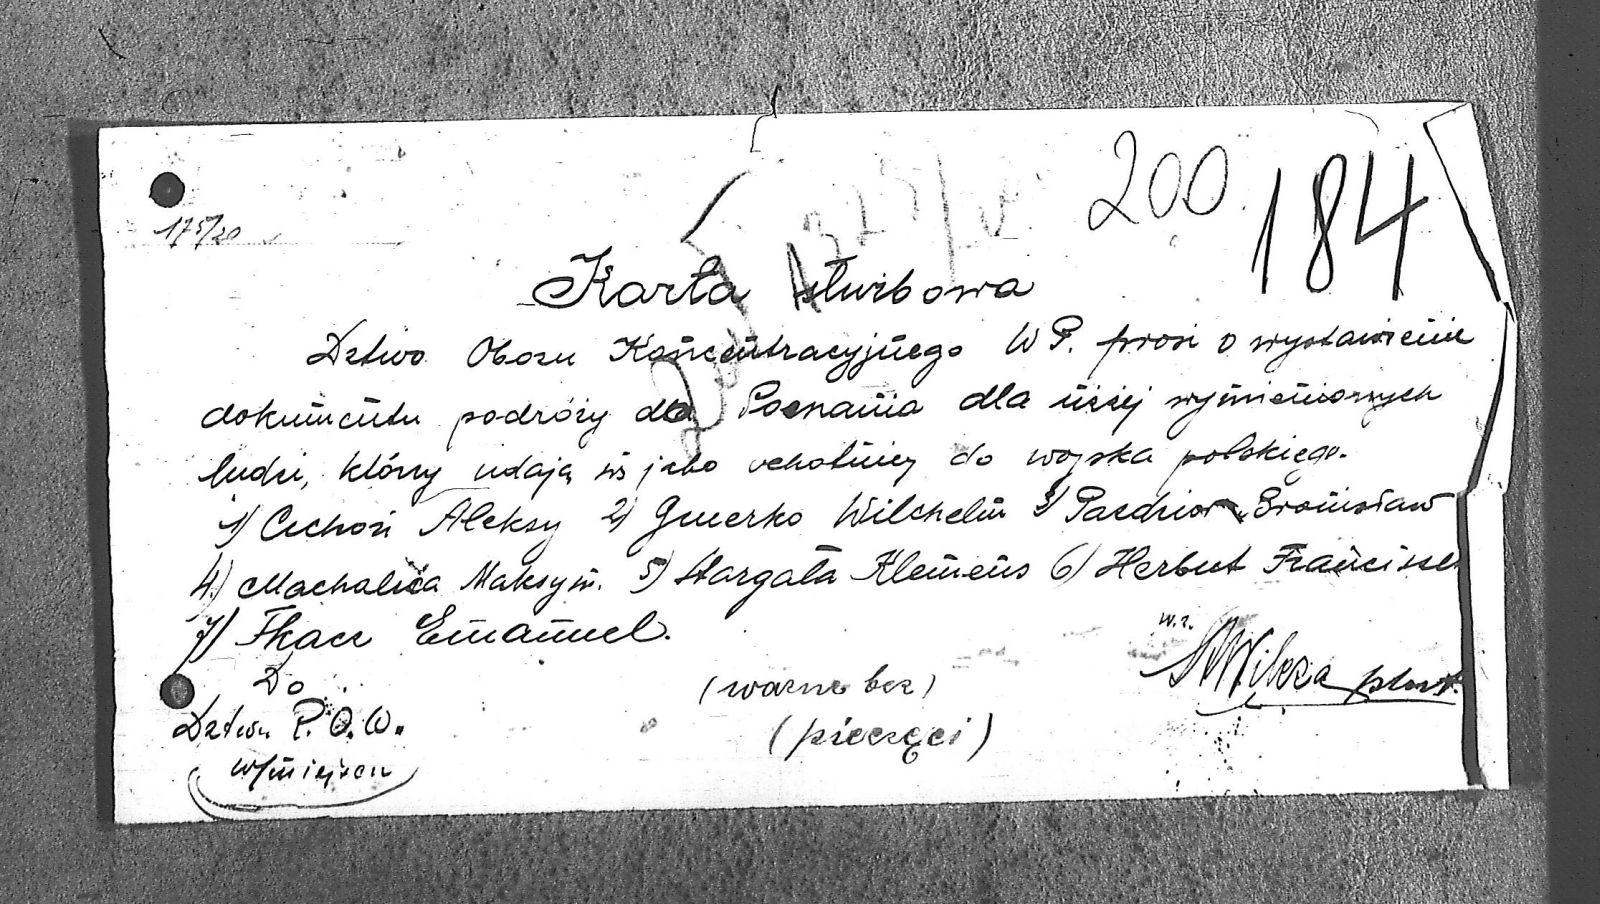 200 184
175/20
Karta służbowa
Dztwo Obozu Koncentracyjnego W P. prosi o wystawienie
dokumentu podróży dla Poznania dla niżej wymienionych
ludzi, którzy udają się jako ochotnicy do wojska polskiego.
1) Cichoń Aleksy 2) Gwerko Wilchelm 3) Pazdzior Bronisław
4) Machalica Maksym. 5) Stargała Klemens 6) Herbut Franciszek
7) Tkacz Emanuel.
w. z.
Do
(ważne bez)
Dztwu P. O. W.
(pieczęci)
w/miejscu